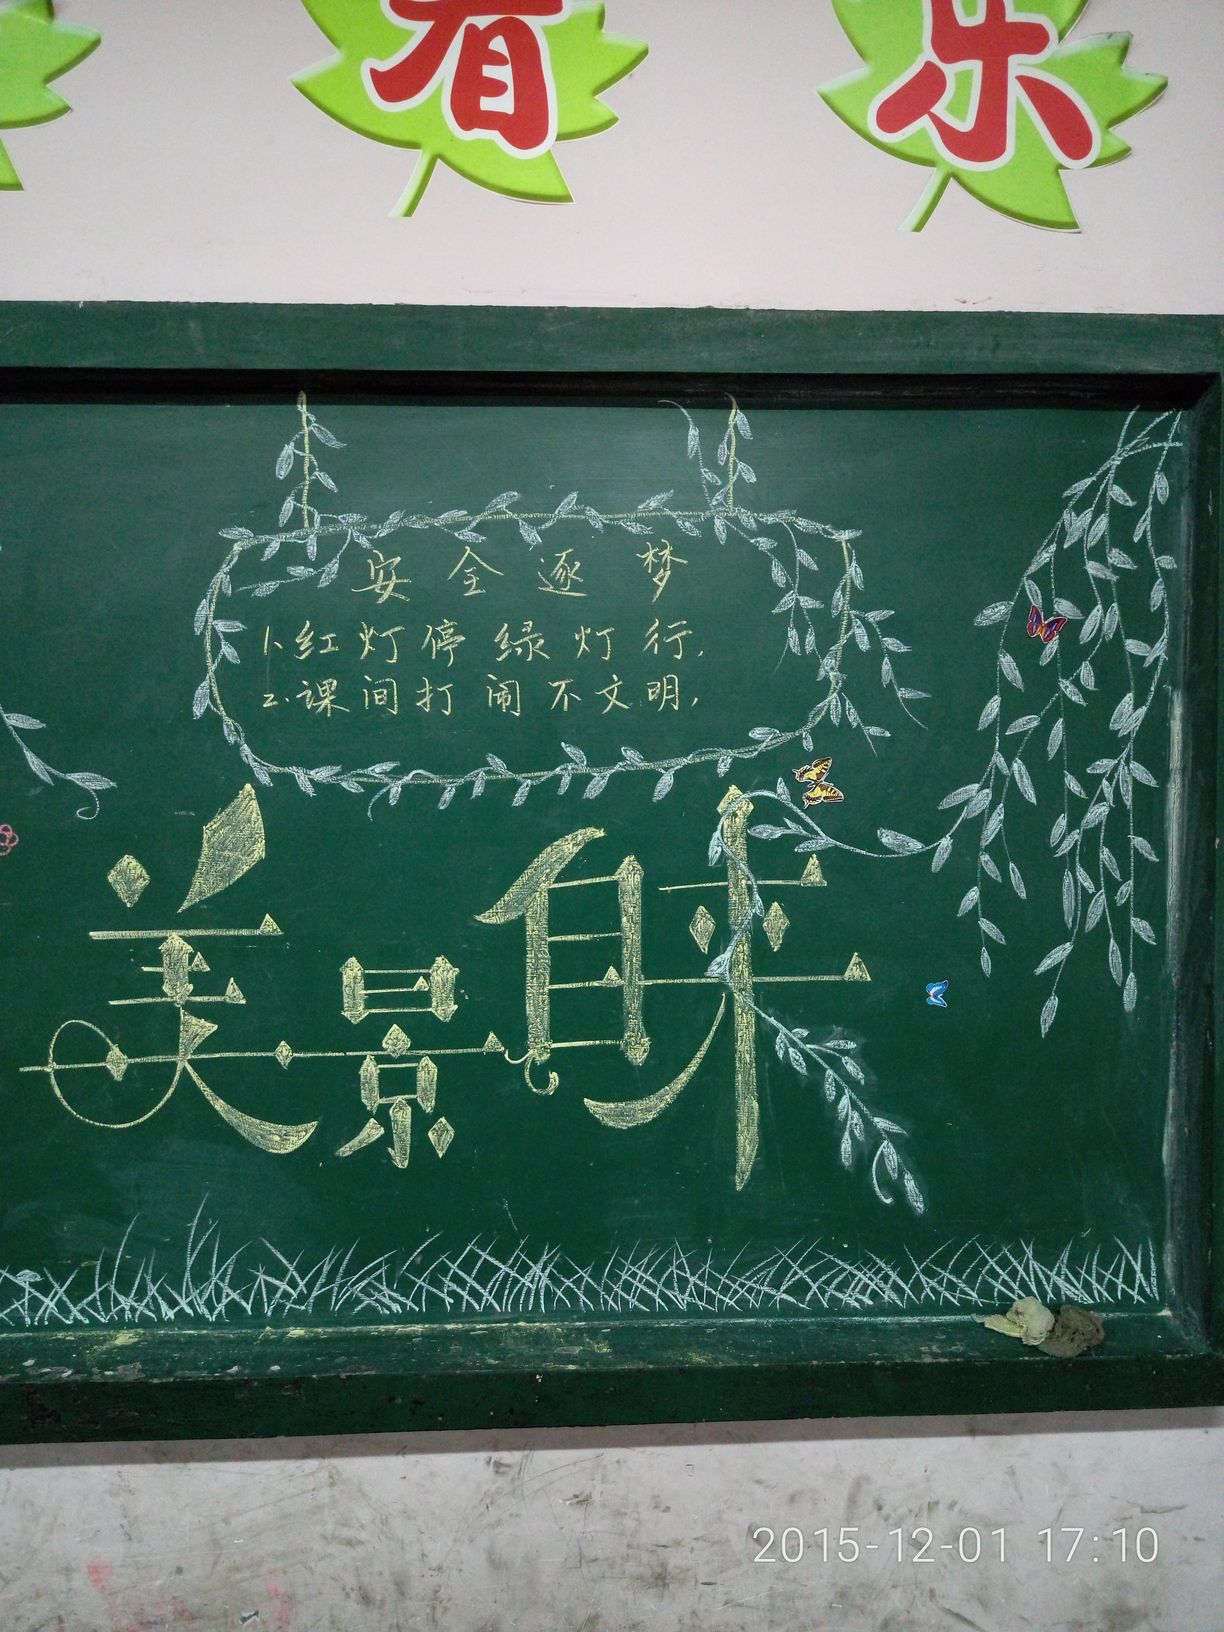 有 乐
安全逐梦
1.红灯停绿灯行,
2.课间打闹不文明,
美景自来
2015-12-01 17:10